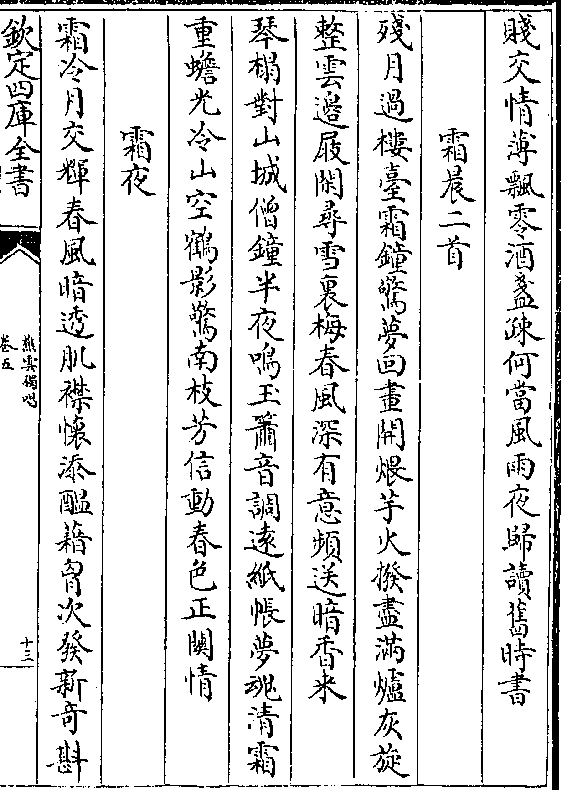 賤交情薄飄零酒盞疎何當風雨夜歸讀舊時書
霜晨二首
殘月過樓臺霜鐘驚夢回畫開煨芋火撥盡滿爐灰旋
整雲邊屐閑尋雪裏梅春風深有意頻送暗香來
琴榻對山城僧鐘半夜鳴玉簫音調遠紙帳夢魂清霜
重蟾光冷山空鶴影驚南枝芳信動春色正關情
霜夜
霜冷月交輝春風暗透肌襟懷添醞藉胷次發新奇斟
欽定四庫全書
樵雲獨唱
卷五
十三